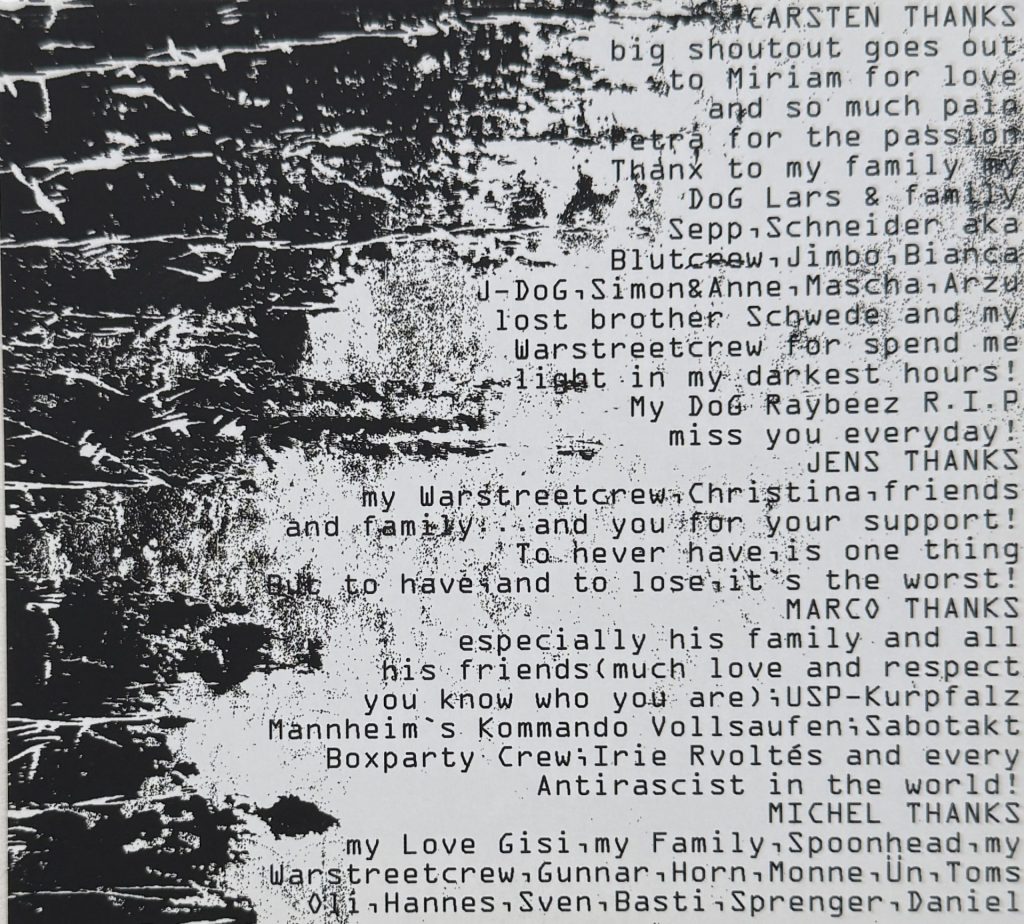 CARSTEN THANKS
big shoutout goes out
to Miriam for love
and so much pain
Petra for the passion
Thanx to my family my
DoG Lars & family
Sepp,Schneider aka
Blutcrew,Jimbo,Bianca
J-DoG,Simon&Anne,Mascha,Arzu
lost brother Schwede and my
Warstreetcrew for spend me
light in my darkest hours!
My DoG Raybeez R.I.P
miss you everyday!
JENS THANKS
my Warstreetcrew,Christina,friends
and family...and you for your support!
To never have,is one thing
But to have,and to lose,it`s the worst!
MARCO THANKS
especially his family and all
his friends(much love and respect
you know who you are);USP-Kurpfalz
Mannheim`s Kommando Vollsaufen;Sabotakt
Boxparty Crew;Irie Rvoltés and every
Antirascist in the world!
MICHEL THANKS
my Love Gisi,my Family,Spoonhead,my
Warstreetcrew,Gunnar,Horn,Monne,Ün,Toms
Oli,Hannes,Sven,Basti,Sprenger,Daniel